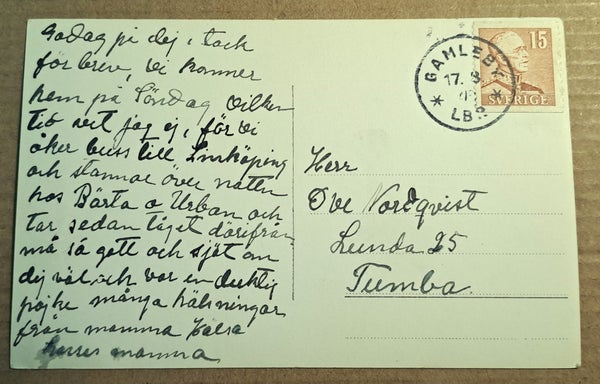 Godag på dej, tack
för brev, vi kommer
hem på Söndag vilken
tid vet jag ej, för vi
åker buss till Linköping
och stannar över natten
hos Bärta o Urban och
tar sedan tåget därifrån
må så gott och sjöt om
dig väl och var en duktig
pojke många hälsningar
från mamma hälsa
mamma
GAMLEBY
17. 8
LBR
15
SVERIGE
Herr
Ove Nordqvist
Lunda 25
Tumba.